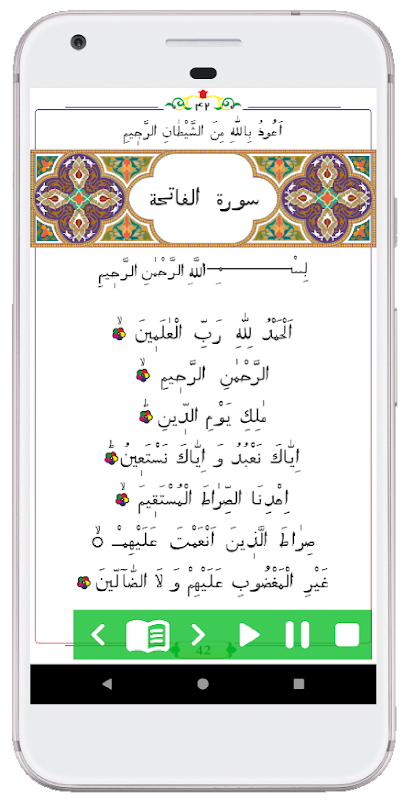 ۴۲
اَعُوذُ بِاللّٰهِ مِنَ الشَّيْطَانِ الرَّجٖيمِ
سورة الفاتحة
بِسْــــــمِ اللّٰهِ الرَّحْمٰنِ الرَّحٖيمِ
اَلْحَمْدُ لِلّٰهِ رَبِّ الْعٰلَمٖينَ ۙ
الرَّحْمٰنِ الرَّحٖيمِ ۙ
مٰلِكِ يَوْمِ الدّٖينِ ؕ
اِيّٰاكَ نَعْبُدُ وَ اِيّٰاكَ نَسْتَعٖينُ ؕ
اِهْدِنَا الصِّرٰاطَ الْمُسْتَقٖيمَ ۙ
صِرٰاطَ الَّذٖينَ اَنْعَمْتَ عَلَيْهِمْ ۙ
غَيْرِ الْمَغْضُوبِ عَلَيْهِمْ وَ لَا الضَّٓالّٖينَ
42